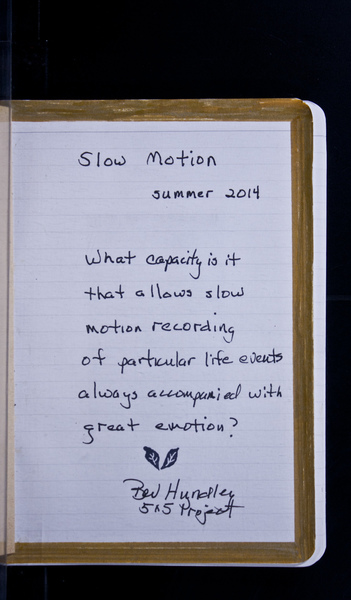 Slow Motion
summer 2014
What capacity is it
that allows slow
motion recording
of particular life events
always accompanied with
great emotion?
Bev Hundley
5x5 Project